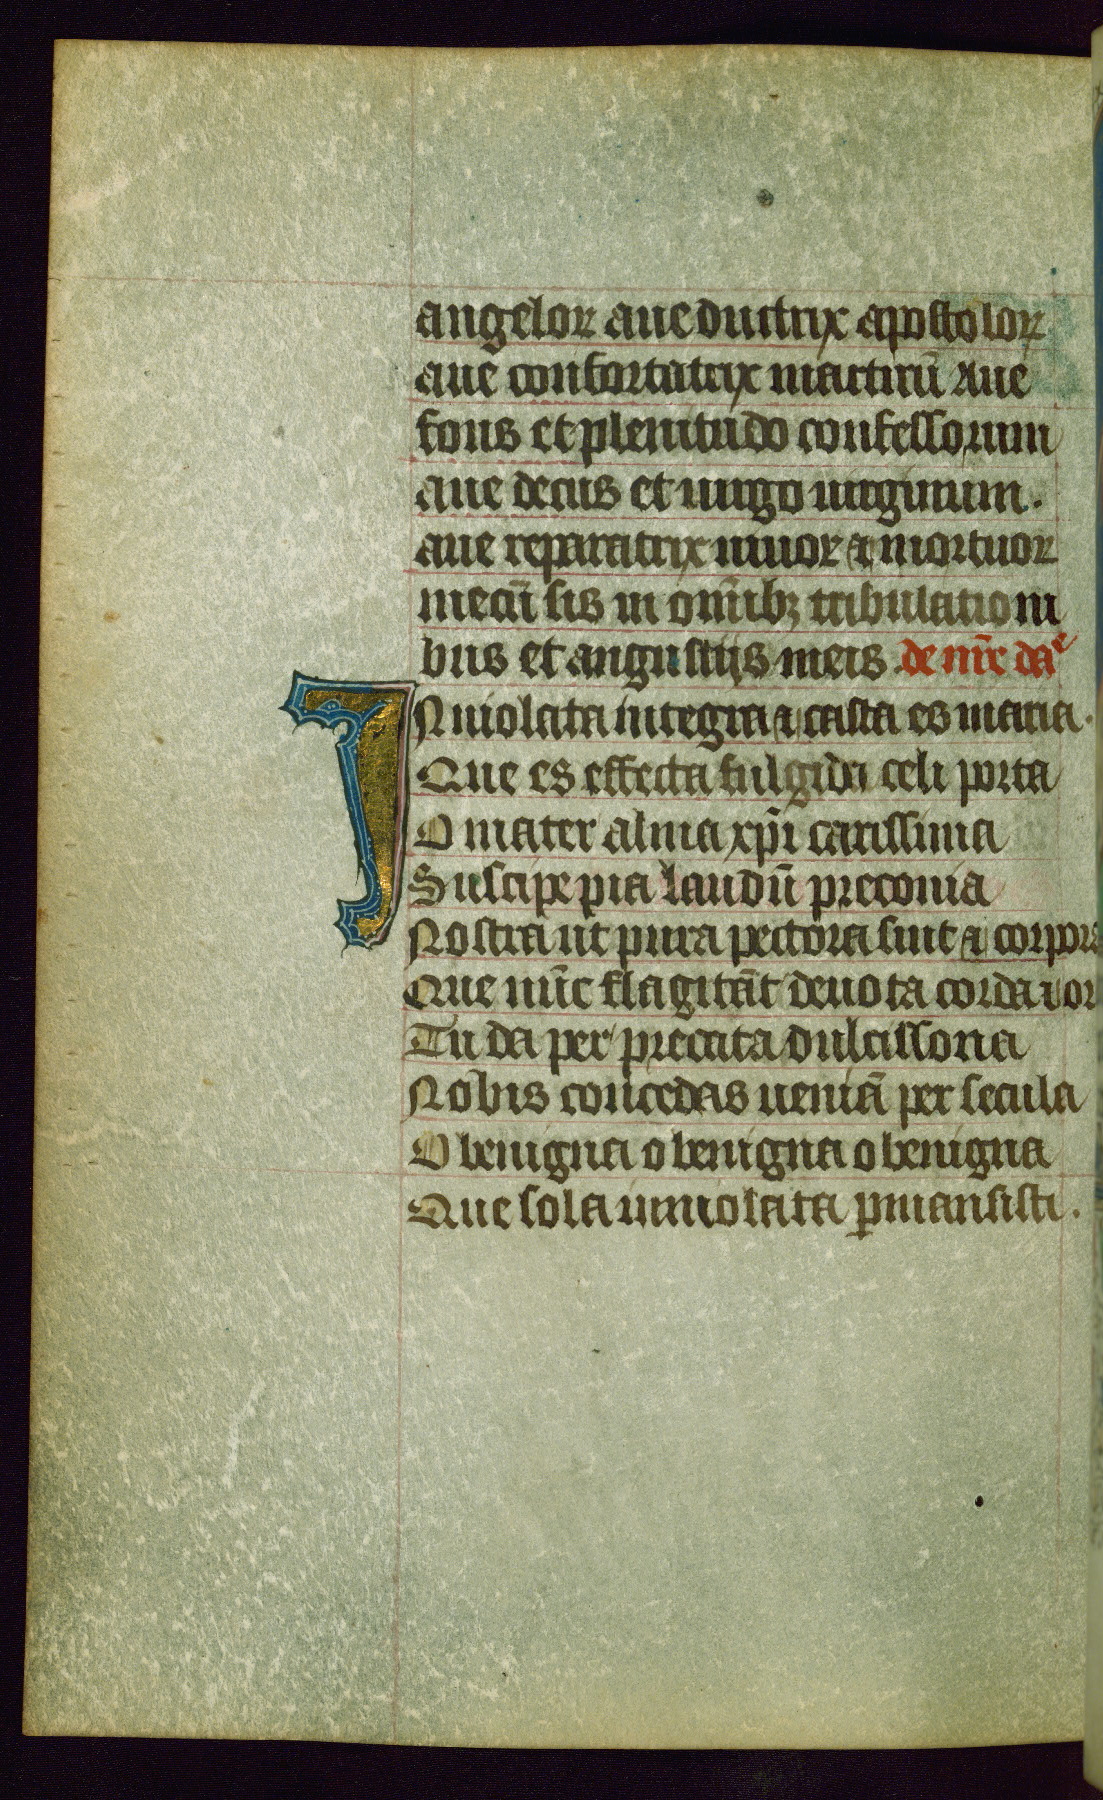 angeloꝝ aue ductrix apostoloꝝ
aue confortatrix martirū Aue
fons et plenitudo confessorum
aue decus et uirgo uirginum.
aue reparatrix uiuoꝝ ⁊ mortuoꝝ
mecū sis in om̄ibꝫ tribulationi
bus et angustijs meis. de nr̄e daᵉ
INuiolata integra ⁊ casta es maria.
Que es effecta fulgida celi porta
O mater alma xp̄i carissima
Suscipe pia laudū preconia
Nostra ut pura pectora sint ⁊ corpora
Que nūc flagitāt deuota corda ⁊ or
Tu da per precata dulcissona
Nobis concedas ueniā per secula
O benigna o benigna o benigna
Que sola inuiolata ꝑmansisti.